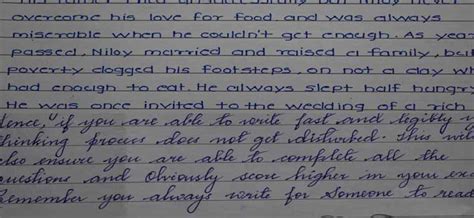 overcome his love for food and was always
miserable when he couldn't get enough. As year
passed, Niloy married and raised a family, but
poverty dogged his footsteps, on not a day wh
had enough to eat. He always slept half hungry
He was once invited to the wedding of a rich
dence, if you are able to write fast and legibly y
thinking process does not get disturbed. This wil
also ensure you are able to complete all the
questions and Obviously score higher in your exa
Remember you always write for Someone to read